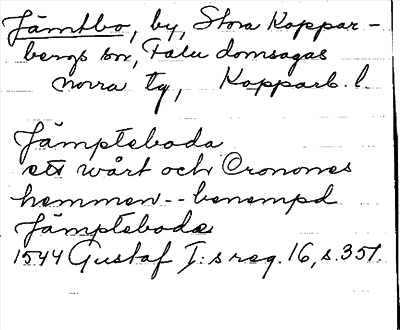 Jämtbo, by, Stora Koppar-
bergs sn, Falu domsagas
norra tg, Kopparb. l.
Jämpteboda
ett wårt och Cronones
hemmen -- benempd
Jämptebode
1544 Gustaf I:s reg. 16, s. 351.